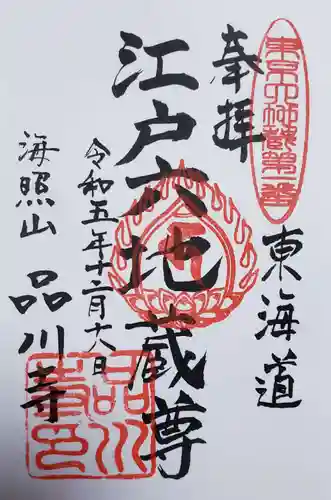 東京六地蔵第一番
奉拝
東海道
江戸六地蔵尊
令和五年十二月十六日
海照山
品川寺
品川寺印